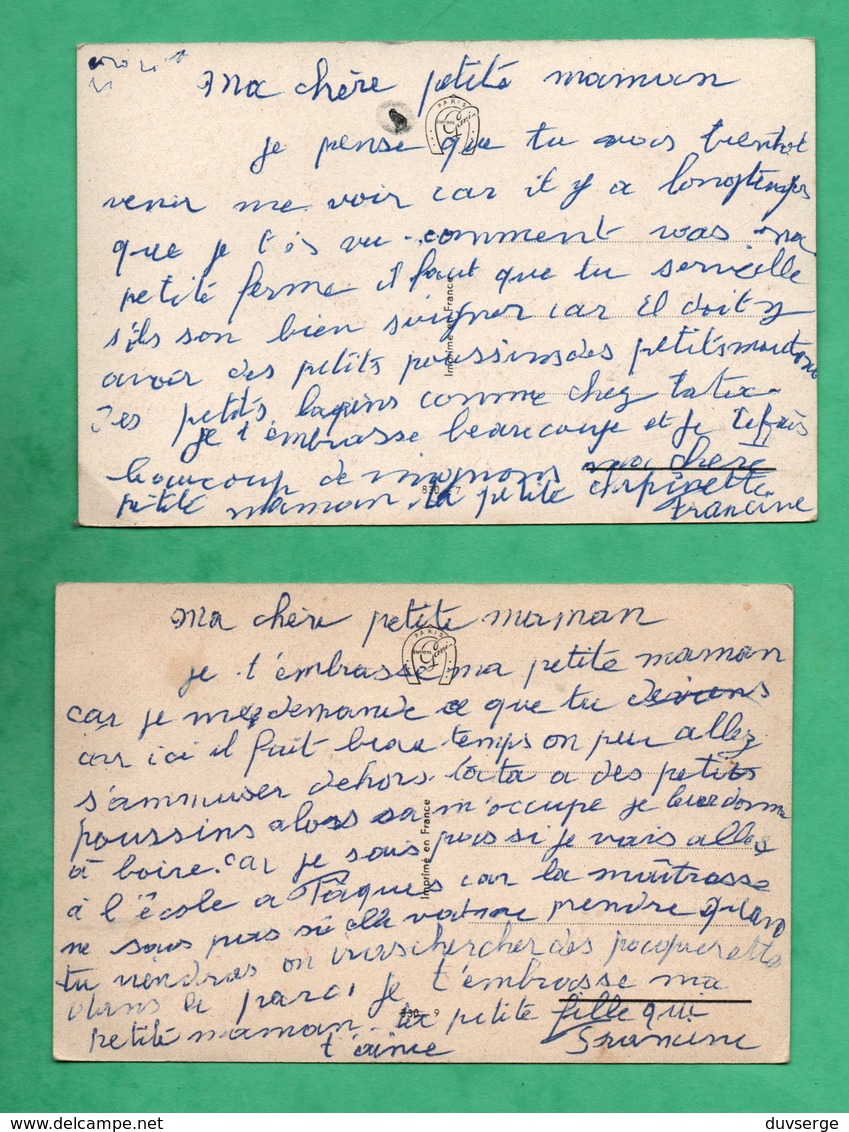 Ma chère petite maman
PARIS
EDITIONS
je pense que tu vas bientot
venir me voir car il y a longtemps
que je t'és vu. comment vas ma
petite ferme il faut que tu serveille
s'ils son bien soigner car il doit y
avoir des petits poussins des petits moutons
des petits lapins comme chez tata.
je t'embrasse beaucoup et je te fais
beaucoup de mignons ma chère
petite maman. la petite
Francine
Imprimé en France
830 7
Ma chère petite maman
PARIS
EDITIONS
je t'embrasse ma petite maman
car je me demande ce que tu deviens
car ici il fait beau temps on peu allez
s'ammuser dehors. tata a des petits
poussins alors sa m'occupe je leur donne
à boire. car je sais pas si je vais allez
à l'école a Pâques car la maîtrasse
ne sais pas si elle va me prendre quand
tu viendras on iras chercher des pacquerettes
dans le parc. je t'embrasse ma
petite maman. la petite fille qui
t'aime Francine
Imprimé en France
830 9
duvserge